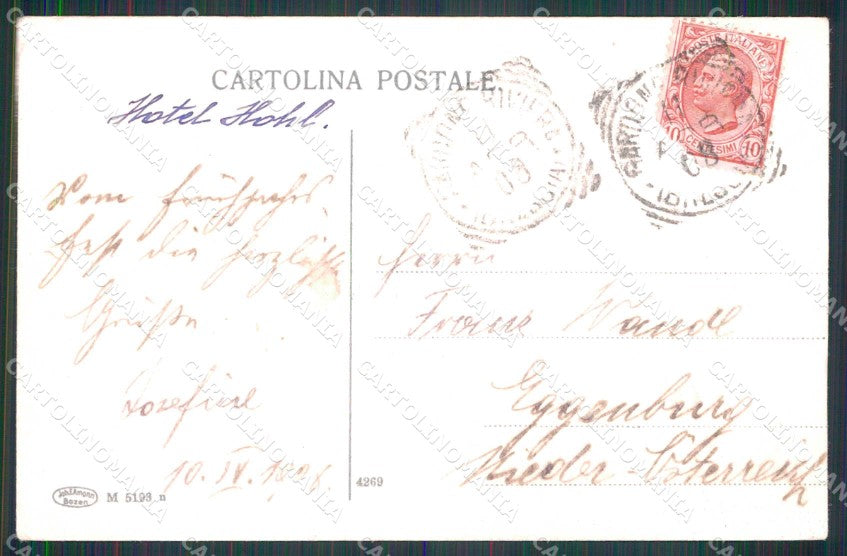 CARTOLINA POSTALE
Hotel Hohl.
POSTE ITALIANE
10 CENTESIMI 10
Vom Frühjahrs
fest die herzlichsten
Grüße
Josefine
10. IV. 1908.
Herrn
Franz Wandl
Eggenburg
Nieder-Österreich
Joh. F. Amonn
Bozen
M 5193 n
4269
CARTOLINOMANIA